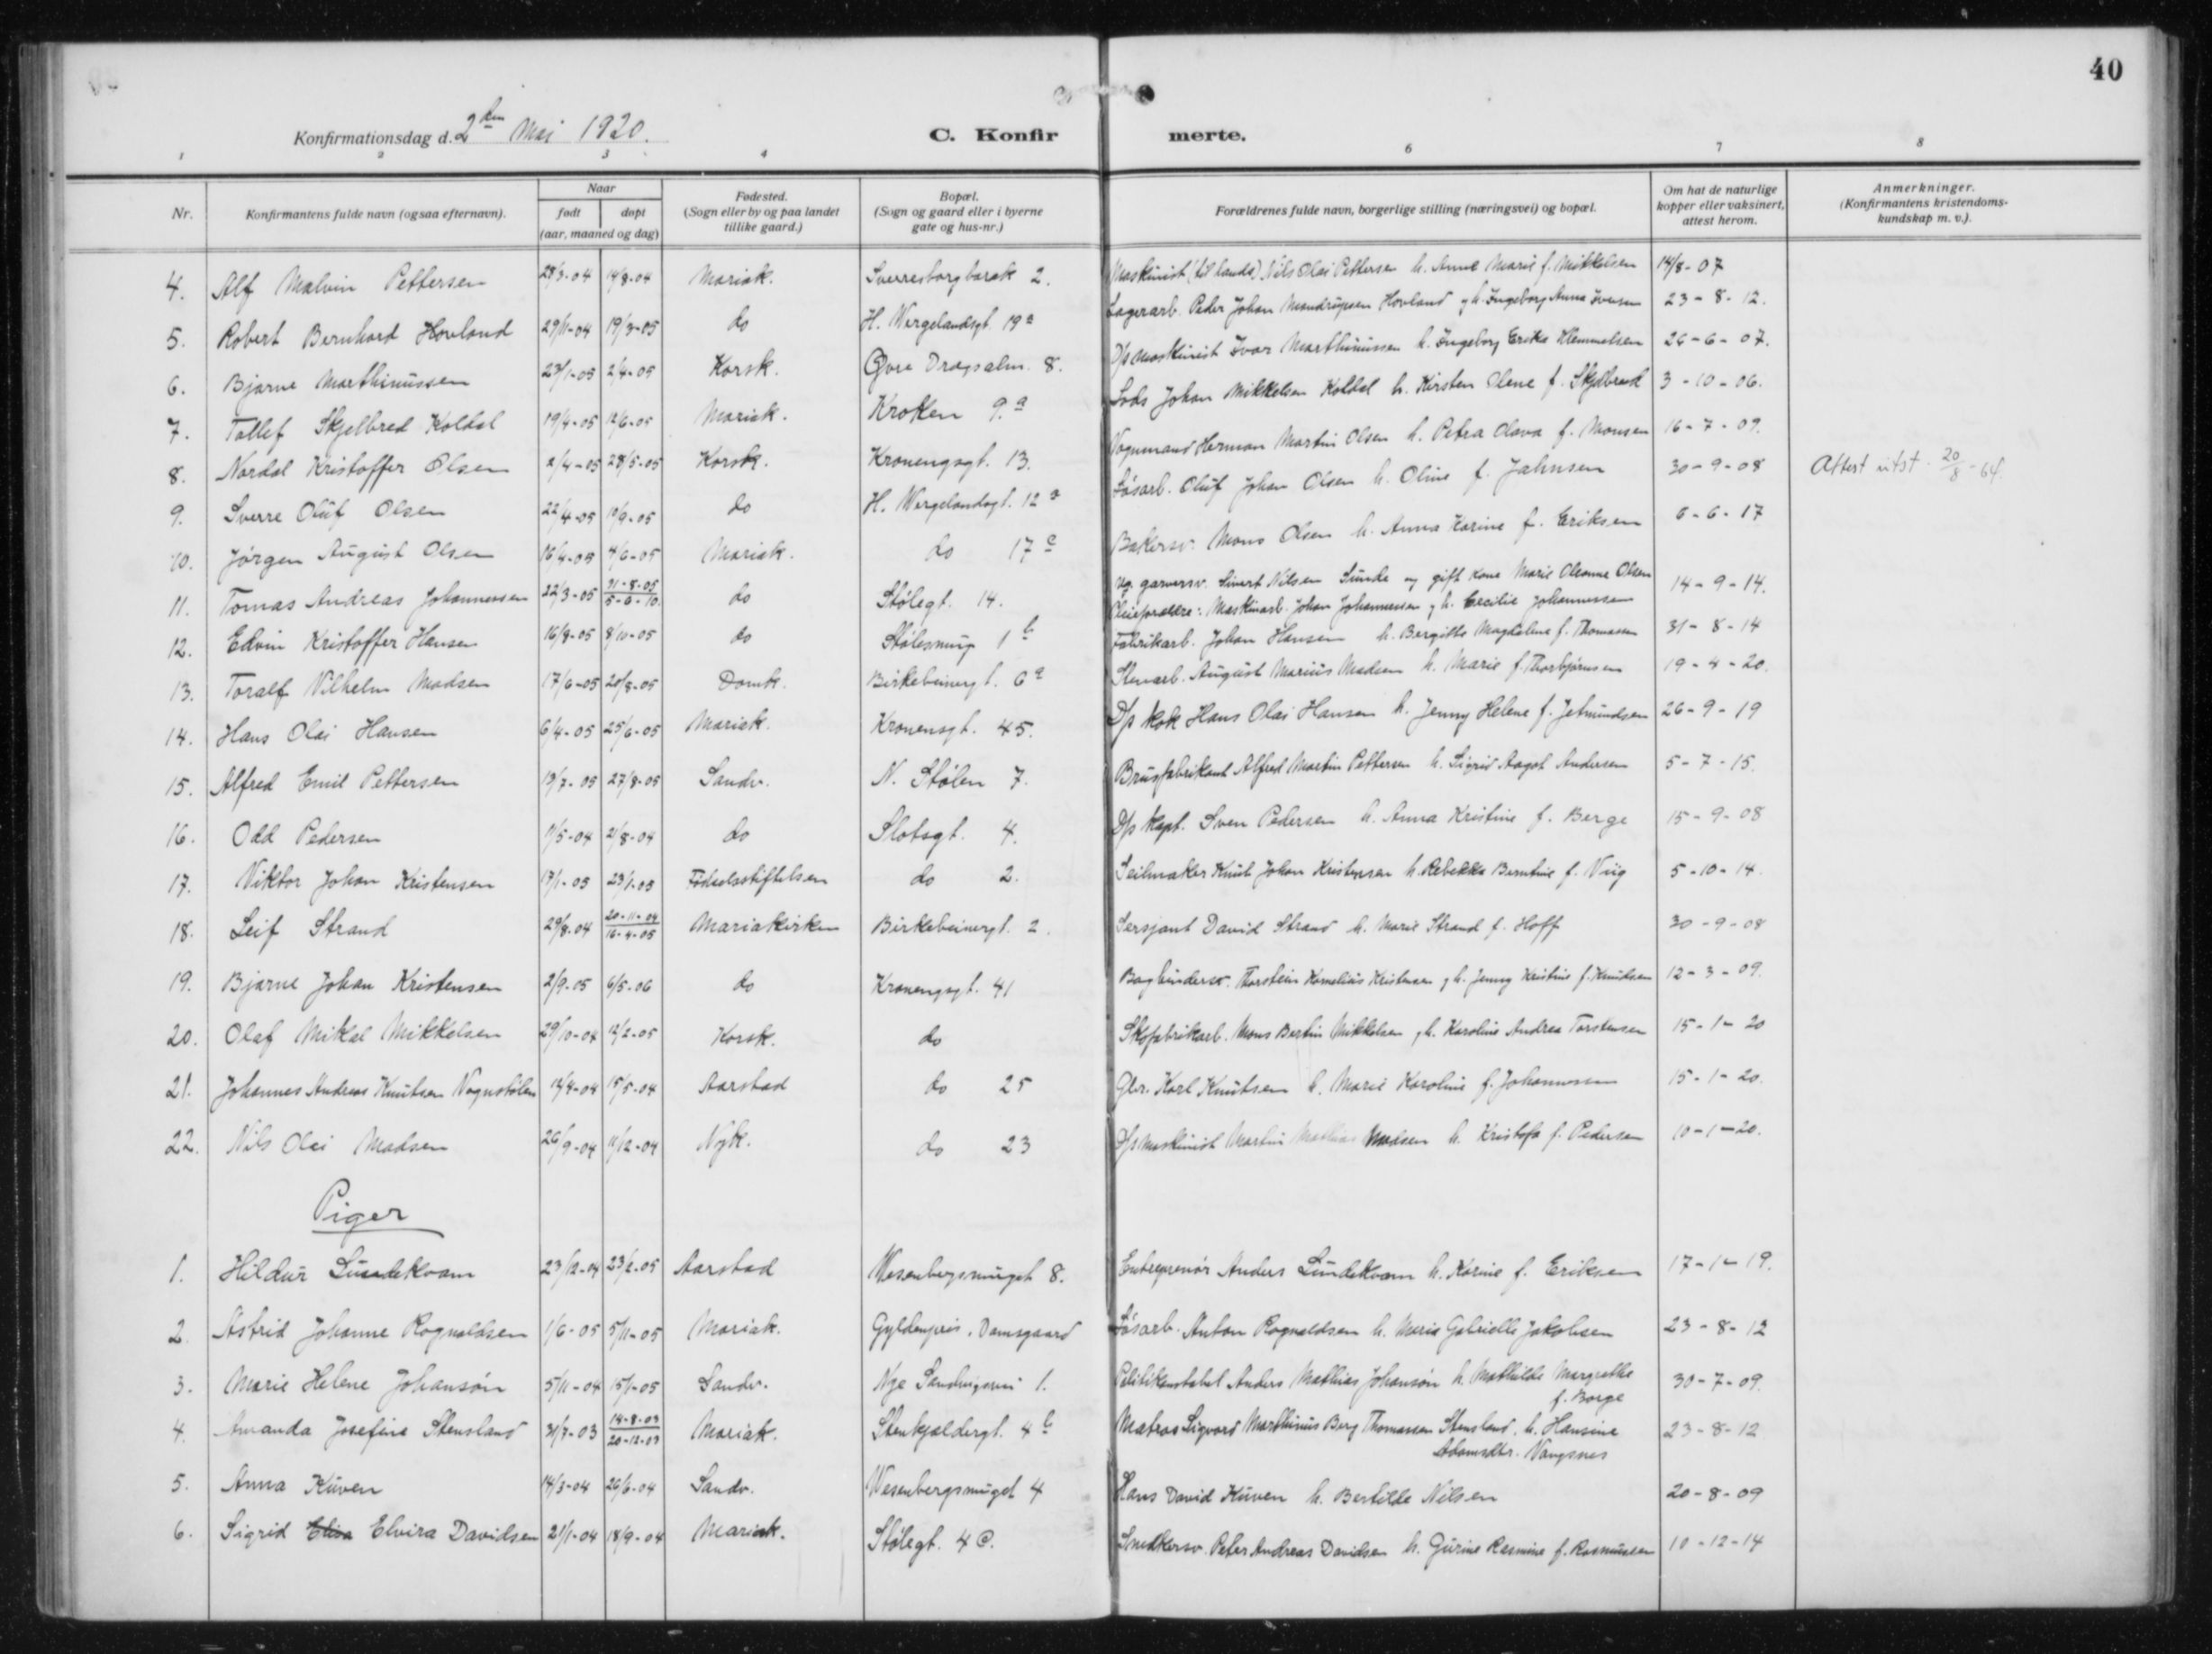 40
Konfirmationsdag d. 2den Mai 1920.
C. Konfirmerte.
1 2 3 4 6 7 8
Nr. Konfirmantens fulde navn (ogsaa efternavn). Naar født døpt (aar, maaned og dag) Fødested. (Sogn eller by og paa landet tillike gaard.) Bopæl. (Sogn og gaard eller i byerne gate og hus-nr.) Forældrenes fulde navn, borgerlige stilling (næringsvei) og bopæl. Om hat de naturlige kopper eller vaksinert, attest herom. Anmerkninger. (Konfirmantens kristendoms-kundskap m. v.).
4. Alf Malvin Pettersen 28/3-04 14/8-04 Mariak. Sverresborg barak 2. Maskinist (til lands) Nils Olai Pettersen h. Anne Marie f. Mikkelsen 14/8-07
5. Robert Bernhard Hovland 29/11-04 19/3-05 do H. Wergelandsgt. 19a Lagerarb. Peder Johan Mandrupsen Hovland og h. Ingeborg Anna Iversen 23-8-12.
6. Bjarne Marthinussen 23/1-05 2/4-05 Korsk. Øvre Dragsalm. 8. D/s maskinist Ivar Marthinussen h. Ingeborg Erika Klemmetsen 26-6-07.
7. Tollef Skjelbred Koldal 19/4-05 12/6-05 Mariak. Kroken 9.a Lods Johan Mikkelsen Koldal h. Kirsten Olene f. Skjelbred 3-10-06.
8. Nordal Kristoffer Olsen 2/4-05 28/5-05 Korsk. Kronengsgt. 13. Vognmand Herman Martin Olsen h. Petra Olava f. Monsen 16-7-09.
9. Sverre Oluf Olsen 22/4-05 10/9-05 do H. Wergelandsgt. 12a Løsarb. Oluf Johan Olsen h. Oline f. Jahnsen 30-9-08 Attest utst. 20/8-64.
10. Jørgen August Olsen 16/4-05 4/6-05 Mariak. do 17c Bakersv. Mons Olsen h. Anna Karine f. Eriksen 6-6-17
11. Tomas Andreas Johannessen 22/3-05 21-8-05 5-6-10. do Stølegt. 14. ug. garversv. Sivert Nilsen Sunde og gift kone Marie Oleanne Olsen
Pleieforældre: Maskinarb. Johan Johannessen og h. Cecilie Johannessen 14-9-14.
12. Edvin Kristoffer Hansen 16/8-05 8/10-05 do Stølesmug 1b Fabrikarb. Johan Hansen h. Bergitte Magdalene f. Thomassen 31-8-14
13. Toralf Vilhelm Madsen 17/6-05 20/8-05 Domk. Birkebeinergt. 6a Stenarb. August Marius Madsen h. Marie f. Thorbjørnsen 19-4-20.
14. Hans Olai Hansen 6/4-05 25/6-05 Mariak. Kronensgt. 45. D/s kok Hans Olai Hansen h. Jenny Helene f. Jetmundsen 26-9-19
15. Alfred Emil Pettersen 13/7-05 27/8-05 Sandv. N. Stølen 7. Brusfabrikant Alfred Martin Pettersen h. Sigrid Aagot Andersen 5-7-15.
16. Odd Pedersen 11/5-04 21/8-04 do Slotsgt. 4. D/s kapt. Sven Pedersen h. Anna Kristine f. Berge 15-9-08
17. Viktor Johan Kristensen 13/1-05 23/1-05 Fødselsstiftelsen do 2. Seilmaker Knut Johan Kristensen h. Rebekka Berntine f. Viig 5-10-14.
18. Leif Strand 29/8-04 20-11-04 16-4-05 Mariakirken Birkebeinergt. 2. Sersjant David Strand h. Marie Strand f. Hoff 30-9-08
19. Bjarne Johan Kristensen 2/9-05 6/5-06 do Kronengsgt. 41 Bogbindersv. Thorstein Kornelius Kristensen og h. Jenny Kristine f. Knudsen 12-3-09.
20. Olaf Mikal Mikkelsen 29/10-04 12/2-05 Korsk. do Skofabrikarb. Mons Bertin Mikkelsen og h. Karoline Andrea Torstensen 15-1-20
21. Johannes Andreas Knutsen Vognstølen 13/4-04 15/5-04 Aarstad do 25 Gbr. Karl Knutsen h. Marie Karoline f. Johannessen 15-1-20.
22. Nils Olai Madsen 26/9-04 11/12-04 Nyk. do 23 D/s maskinist Martin Mathias Madsen h. Kristofa f. Pedersen 10-1-20.
Piger
1. Hildur Lundekvam 23/12-04 23/2-05 Aarstad Wesenbergsmuget 8. Entreprenør Anders Lundekvam h. Karine f. Eriksen 17-1-19.
2. Astrid Johanne Rognaldsen 1/6-05 5/11-05 Mariak. Gyldenpris, Damsgaard Løsarb. Anton Rognaldsen h. Marie Gabrielle Jakobsen 23-8-12
3. Marie Helene Johansón 5/11-04 15/1-05 Sandv. Nye Sandvigsvei 1. Politikonstabel Anders Mathias Johansón h. Mathilde Margrethe f. Borge 30-7-09.
4. Amanda Josefine Stensland 31/7-03 14-8-03 20-12-03 Mariak. Stenkjeldergt. 4b Matros Sigvard Marthinus Berg Thomassen Stensland, h. Hansine Adamsdtr. Vangsnes 23-8-12
5. Anna Kuven 14/3-04 26/6-04 Sandv. Wesenbergsmuget 4 Hans David Kuven h. Bertilde Nilsen 20-8-09
6. Sigrid Elisa Elvira Davidsen 21/1-04 18/9-04 Mariak. Stølegt. 4 C. Snedkersv. Peter Andreas Davidsen h. Gurine Rasmine f. Rasmussen 10-12-14